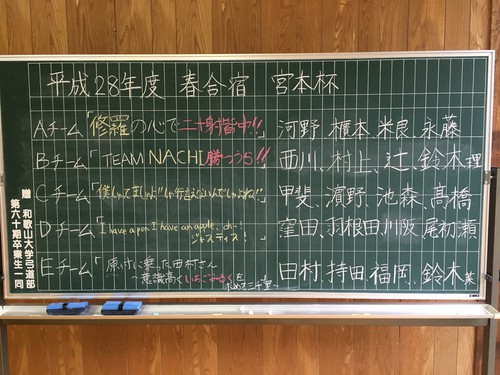 平成28年度 春合宿 宮本杯
Aチーム「修羅の心で二十射皆中!!」 河野、櫃本、米良、永藤
Bチーム「TEAM NACHI勝つつら!!」 西川、村上、辻、鈴木理
Cチーム 甲斐、濵野、池森、髙橋
Dチーム「I have a pen, I have an apple, ジャスティス!」 窪田、羽根田、川阪、尾初瀬
Eチーム「原付に乗った田村さん
〜意識高く 求めて三千里〜 田村、持田、福岡、鈴木菜
贈 和歌山大学弓道部
第六十期卒業生一同